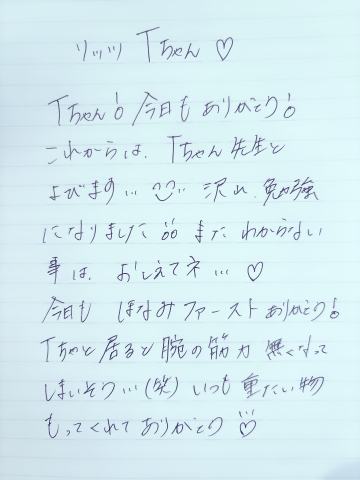 リッツ Tちゃん ♡
Tちゃん! 今日も ありがとう!
これからは、Tちゃん先生と
よびます… 沢山 勉強
になりました!! また わからない
事は、おしえてネ… ♡
今日も ほなみファースト ありがとう!
Tちゃと居ると 腕の筋力 無くなって
しまいそう…(笑) いつも 重たい物
もってくれて ありがとう ♡